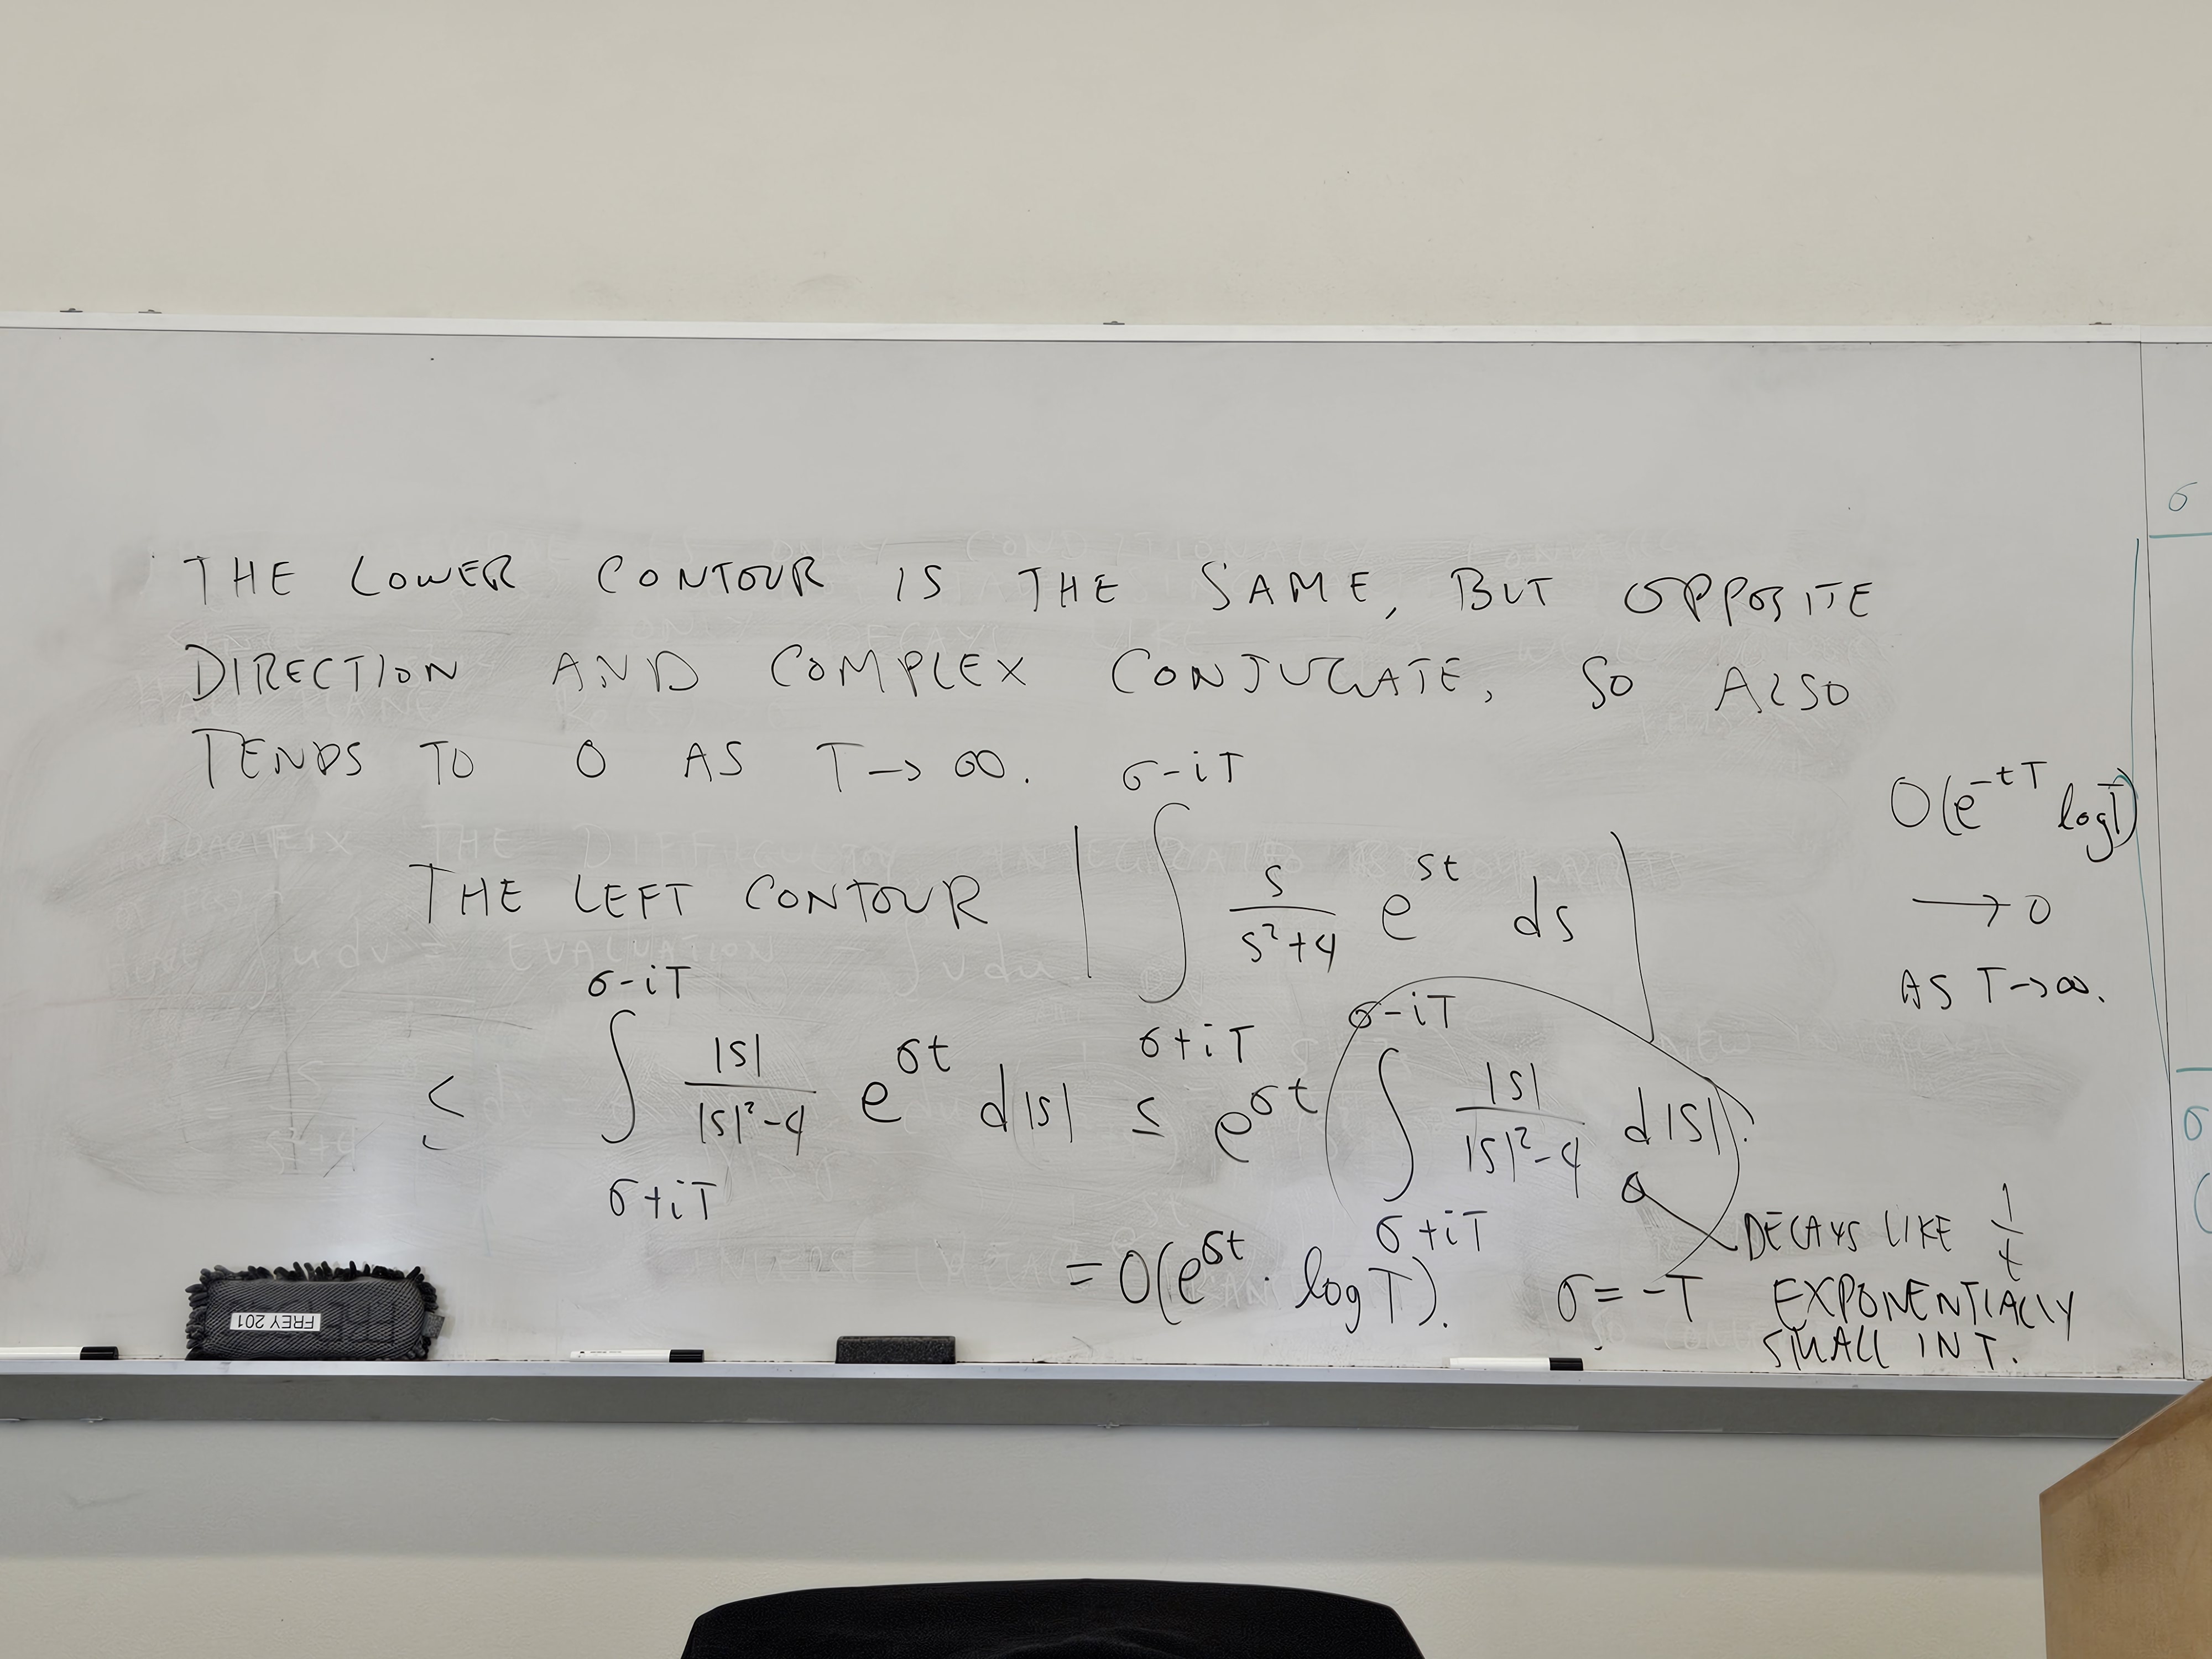 THE LOWER CONTOUR IS THE SAME, BUT OPPOSITE
DIRECTION AND COMPLEX CONJUGATE, SO ALSO
TENDS TO 0 AS T→∞.
THE LEFT CONTOUR | ∫_{σ+iT}^{σ-iT} s/(s²+4) e^{st} ds |
≤ ∫_{σ+iT}^{σ-iT} |s|/(|s|²-4) e^{σt} d|s| ≤ e^{σt} ∫_{σ+iT}^{σ-iT} |s|/(|s|²-4) d|s|.
= O(e^{σt} · log T). σ = -T
DECAYS LIKE 1/t
EXPONENTIALLY
SMALL IN T.
O(e^{-tT} log T)
→ 0
AS T→∞.
FREY 201
σ